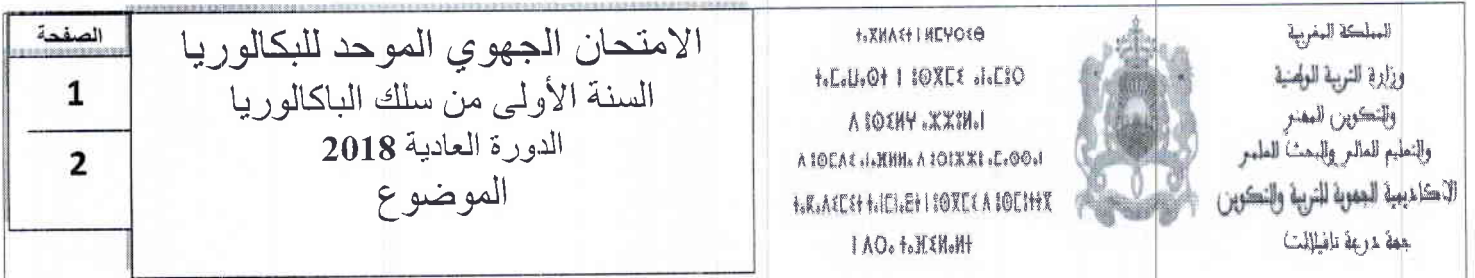 المملكة المغربية
وزارة التربية الوطنية
والتكوين المهني
والتعليم العالي والبحث العلمي
الأكاديمية الجهوية للتربية والتكوين
جهة درعة تافيلالت
ⵜⴰⴳⵍⴷⵉⵜ ⵏ ⵍⵎⵖⵔⵉⴱ
ⵜⴰⵎⴰⵡⴰⵙⵜ ⵏ ⵓⵙⴳⵎⵉ ⴰⵏⴰⵎⵓⵔ
ⴷ ⵓⵙⵎⵓⵜⵜⴳ
ⵏ ⴷⵔⴰ ⵜⴰⴼⵉⵍⴰⵍⵜ
الامتحان الجهوي الموحد للبكالوريا
السنة الأولى من سلك الباكالوريا
الدورة العادية 2018
الموضوع
الصفحة
1
2